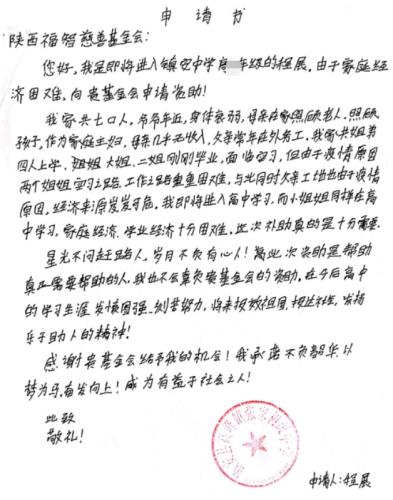 申请书
陕西福智慈善基金会：
您好，我是即将进入镇安中学高 年级的程展。由于家庭经
济困难，向贵基金会申请资助！
我家共七口人，爷爷年近，身体衰弱，母亲在家照顾老人，照顾
孩子，作为家庭主妇，母亲几乎无收入，父亲常年在外务工。我家共姐弟
四人上学，姐姐大姐、二姐刚刚毕业，面临实习，但由于疫情原因
两个姐姐实习之路，工作之路重重困难，与此同时父亲工地也由于疫情
原因，经济来源岌岌可危。我即将进入高中学习，而小姐姐同样在高
中学习，家庭经济、学业经济十分困难。此次补助真的是十分需要。
星光不问赶路人，岁月不负有心人！离此次资助是帮助
真正需要帮助的人，我也不会辜负贵基金会的资助。在今后高中
的学习生涯，发愤图强、刻苦努力，将来报效祖国，报达社会，发扬
乐于助人的精神！
感谢贵基金会给予我的机会！我承诺不负韶华以
梦为马，奋发向上！成为有益于社会之人！
此致
敬礼！
申请人：程展